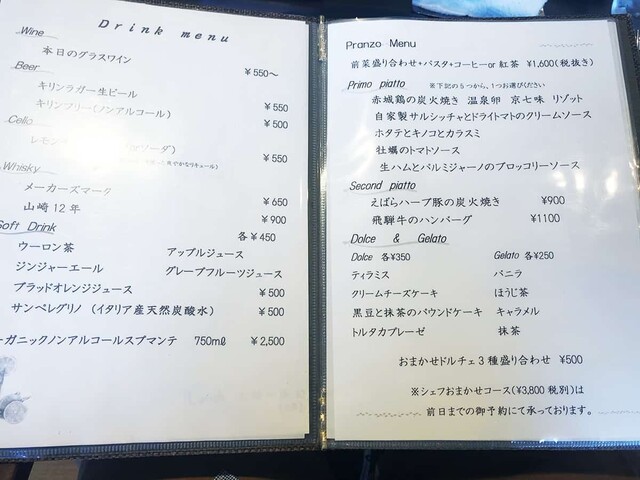 Drink menu
Wine
本日のグラスワイン ¥550〜
Beer
キリンラガー生ビール ¥550
キリンフリー(ノンアルコール) ¥500
Cello
レモン ソーダ) ¥550
Whisky
メーカーズマーク ¥650
山崎12年 ¥900
Soft Drink 各¥450
ウーロン茶 アップルジュース
ジンジャーエール グレープフルーツジュース
ブラッドオレンジジュース ¥500
サンペレグリノ (イタリア産天然炭酸水) ¥500
ーガニックノンアルコールスプマンテ 750㎖ ¥2,500
Pranzo Menu
前菜盛り合わせ+パスタ+コーヒーor紅茶 ¥1,600(税抜き)
Primo piatto ※下記の5つから、1つお選びください
赤城鶏の炭火焼き 温泉卵 京七味 リゾット
自家製サルシッチャとドライトマトのクリームソース
ホタテとキノコとカラスミ
牡蠣のトマトソース
生ハムとパルミジャーノのブロッコリーソース
Second piatto
えばらハーブ豚の炭火焼き ¥900
飛騨牛のハンバーグ ¥1100
Dolce & Gelato
Dolce 各¥350 Gelato 各¥250
ティラミス バニラ
クリームチーズケーキ ほうじ茶
黒豆と抹茶のパウンドケーキ キャラメル
トルタカプレーゼ 抹茶
おまかせドルチェ3種盛り合わせ ¥500
※シェフおまかせコース(¥3,800税別)は
前日までの御予約にて承っております。